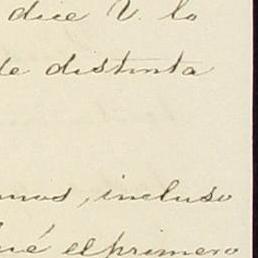 dice V. lo
de distinta
mos, incluso
qué el primero